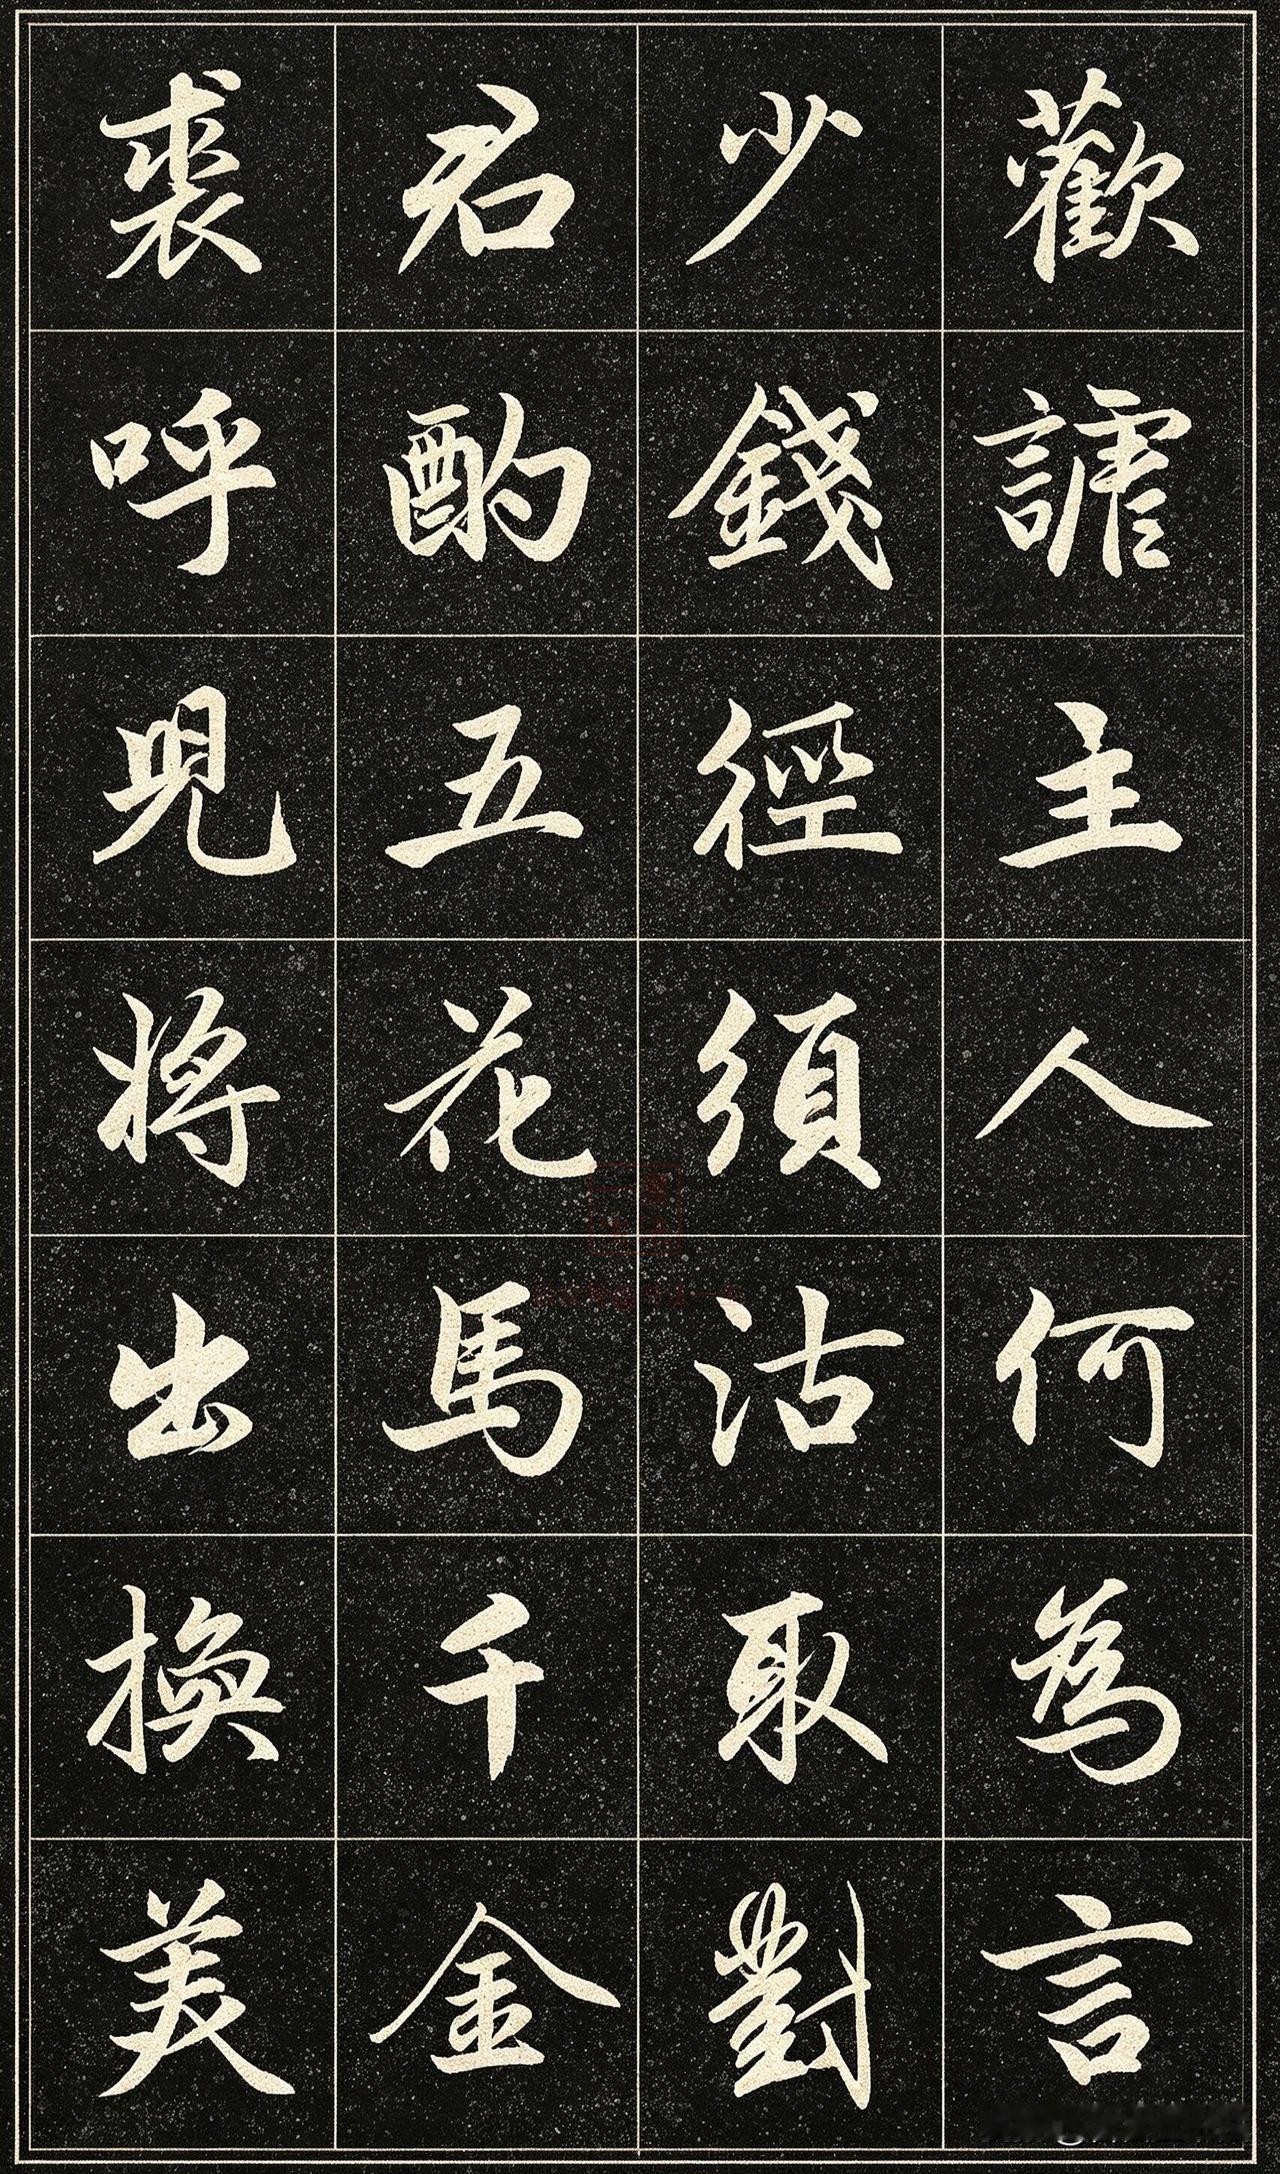 歡謔主人何為言
少錢徑須沽取對
君酌五花馬千金
裘呼児將出換美